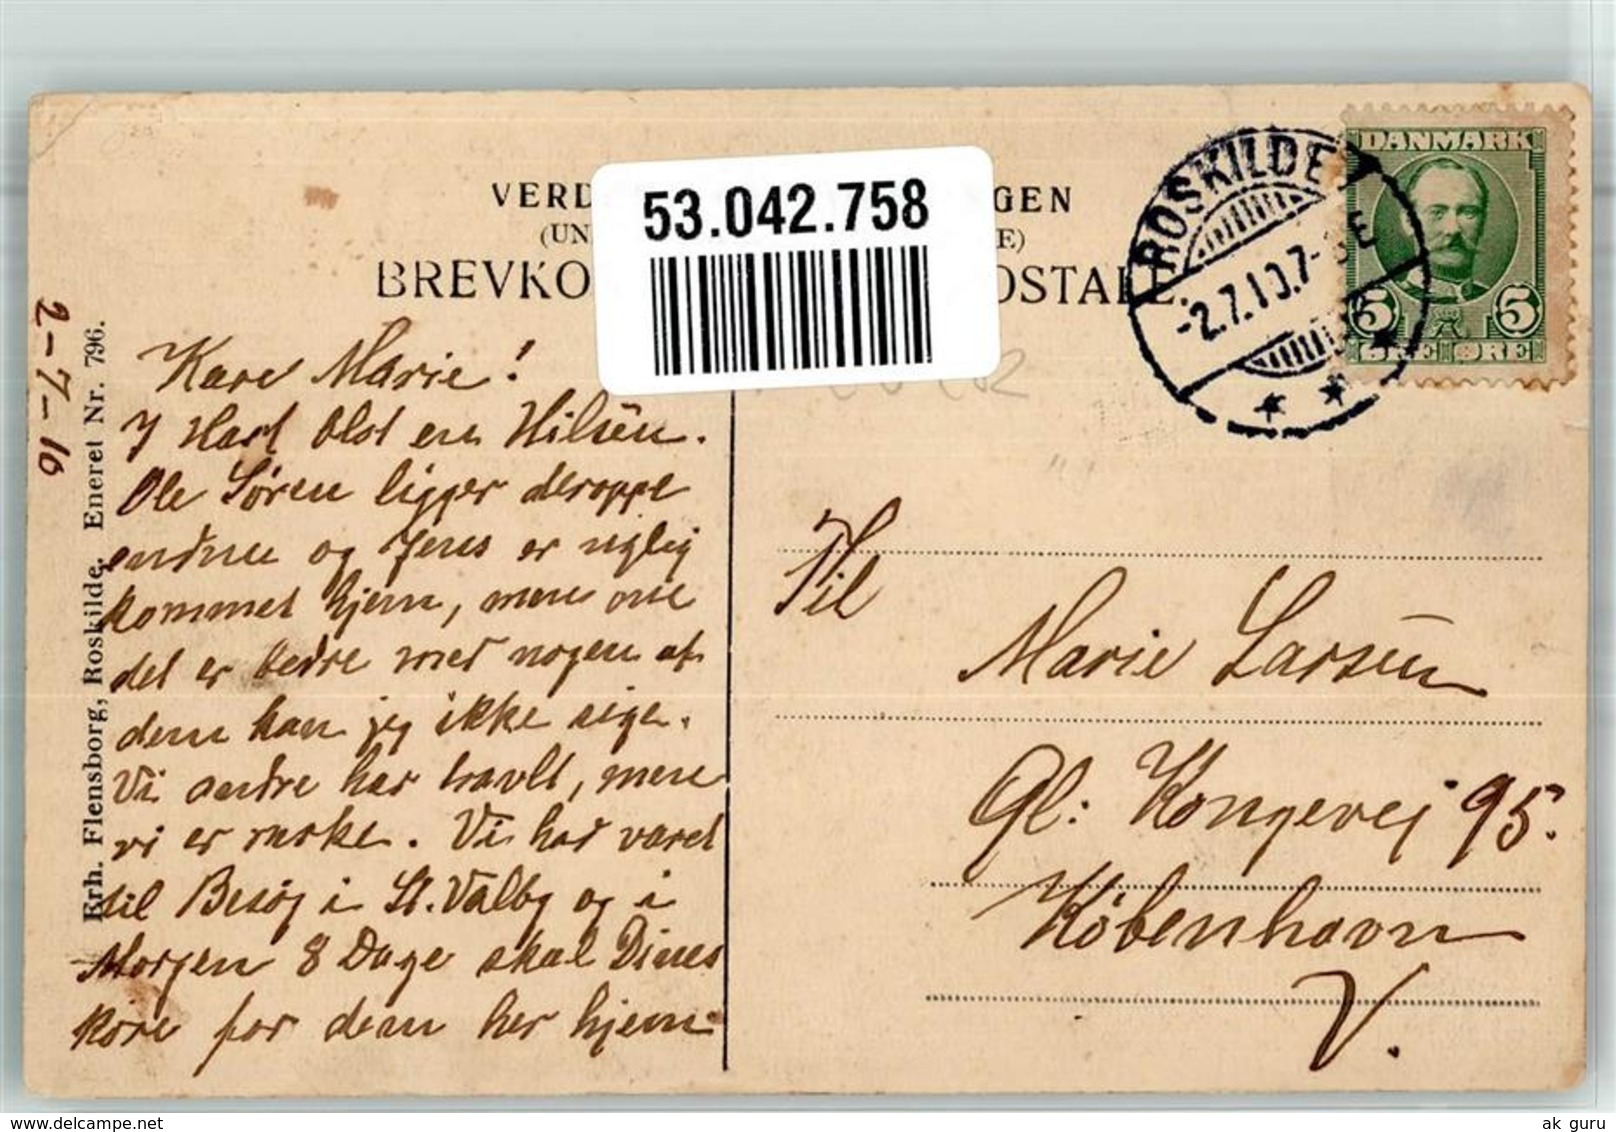 VERD GEN
(UN E)
BREVKO OSTALE.
53.042.758
ROSKILDE
-2.7.10.7- E
DANMARK
5 5
ØRE ØRE
2-7-10
Erh. Flensborg, Roskilde. Eneret Nr. 796.
Kære Marie!
I Hast blot en Hilsen.
Ole Søren ligger deroppe
endnu og Jens er
kommet hjem, men om
det er bedre med nogen af
dem kan jeg ikke sige.
Vi andre har travlt, men
vi er raske. Vi har været
til Besøg i St. Valby og i
Morgen 8 Dage skal
køre for dem her hjem
Til
Marie Larsen
Gl: Kongevej 95.
København
V.
ak guru